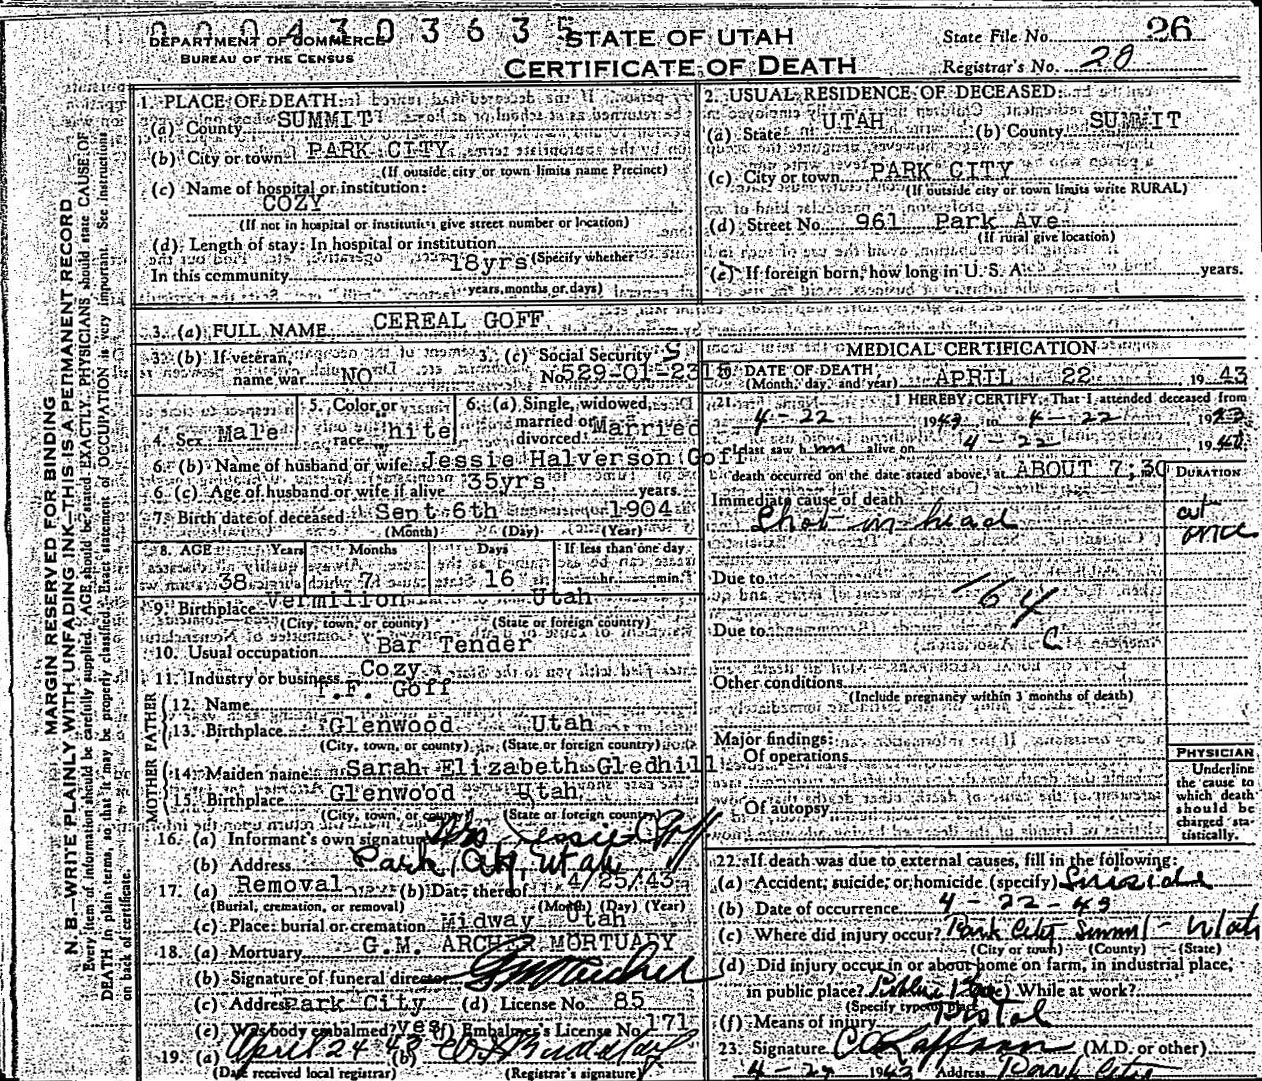 0 0 0 4 3 0 3 6 3 5
DEPARTMENT OF COMMERCE
BUREAU OF THE CENSUS
STATE OF UTAH
CERTIFICATE OF DEATH
State File No. 26
Registrar's No. 20
MARGIN RESERVED FOR BINDING
N. B.—WRITE PLAINLY WITH UNFADING INK—THIS IS A PERMANENT RECORD
Every item of information should be carefully supplied. AGE should be stated EXACTLY. PHYSICIANS should state CAUSE OF
DEATH in plain terms, so that it may be properly classified. Exact statement of OCCUPATION is very important. See instructions
on back of certificate.
1. PLACE OF DEATH:
(a) County SUMMIT
(b) City or town PARK CITY
(If outside city or town limits name Precinct)
(c) Name of hospital or institution:
COZY
(If not in hospital or institution give street number or location)
(d) Length of stay: In hospital or institution
18yrs (Specify whether
In this community
years, months or days)
2. USUAL RESIDENCE OF DECEASED:
(a) State UTAH (b) County SUMMIT
(c) City or town PARK CITY
(If outside city or town limits write RURAL)
(d) Street No. 961 Park Ave
(If rural give location)
(e) If foreign born, how long in U. S. A. years.
3. (a) FULL NAME CEREAL GOFF
3. (b) If veteran, name war NO
3. (c) Social Security No. 529-01-2315
4. Sex Male
5. Color or race hite
6. (a) Single, widowed, married or divorced Married
6. (b) Name of husband or wife Jessie Halverson Goff
6. (c) Age of husband or wife if alive 35yrs years.
7. Birth date of deceased Sept 6th 1904
(Month) (Day) (Year)
8. AGE Years Months Days If less than one day
38 7 16 hr. min.
9. Birthplace Vermilion Utah
(City, town, or county) (State or foreign country)
10. Usual occupation Bar Tender
11. Industry or business Cozy
FATHER
12. Name T.F. Goff
13. Birthplace Glenwood Utah
(City, town, or county) (State or foreign country)
MOTHER
14. Maiden name Sarah Elizabeth Gledhill
15. Birthplace Glenwood Utah
(City, town, or county) (State or foreign country)
16. (a) Informant's own signature Mrs Jessie Goff
(b) Address Park City, Utah
17. (a) Removal (b) Date thereof 4/25/43
(Burial, cremation, or removal) (Month) (Day) (Year)
(c) Place: burial or cremation Midway Utah
18. (a) Mortuary G.M. ARCHER MORTUARY
(b) Signature of funeral director G M Archer
(c) Address Park City (d) License No. 85
(e) Was body embalmed? yes (f) Embalmer's License No. 171
19. (a) April 24 43 (b)
(Date received local registrar) (Registrar's signature)
MEDICAL CERTIFICATION
DATE OF DEATH
(Month, day, and year) APRIL 22 19 43
21. I HEREBY CERTIFY, That I attended deceased from
4-22 1943 to 4-22 19
last saw him alive on 4-22 19
death occurred on the date stated above, at ABOUT 7;30
DURATION
Immediate cause of death
Shot in head
at once
Due to
164
Due to
C
Other conditions
(Include pregnancy within 3 months of death)
Major findings:
Of operations
Of autopsy
PHYSICIAN
Underline
the cause to
which death
should be
charged sta-
tistically.
22. If death was due to external causes, fill in the following:
(a) Accident, suicide, or homicide (specify) Suiside
(b) Date of occurrence 4-22-43
(c) Where did injury occur? Park City Summit - Utah
(City or town) (County) (State)
(d) Did injury occur in or about home on farm, in industrial place,
in public place? Public Place (e) While at work?
(Specify type of place)
(f) Means of injury Pistol
23. Signature (M.D. or other)
1943 Address Park City